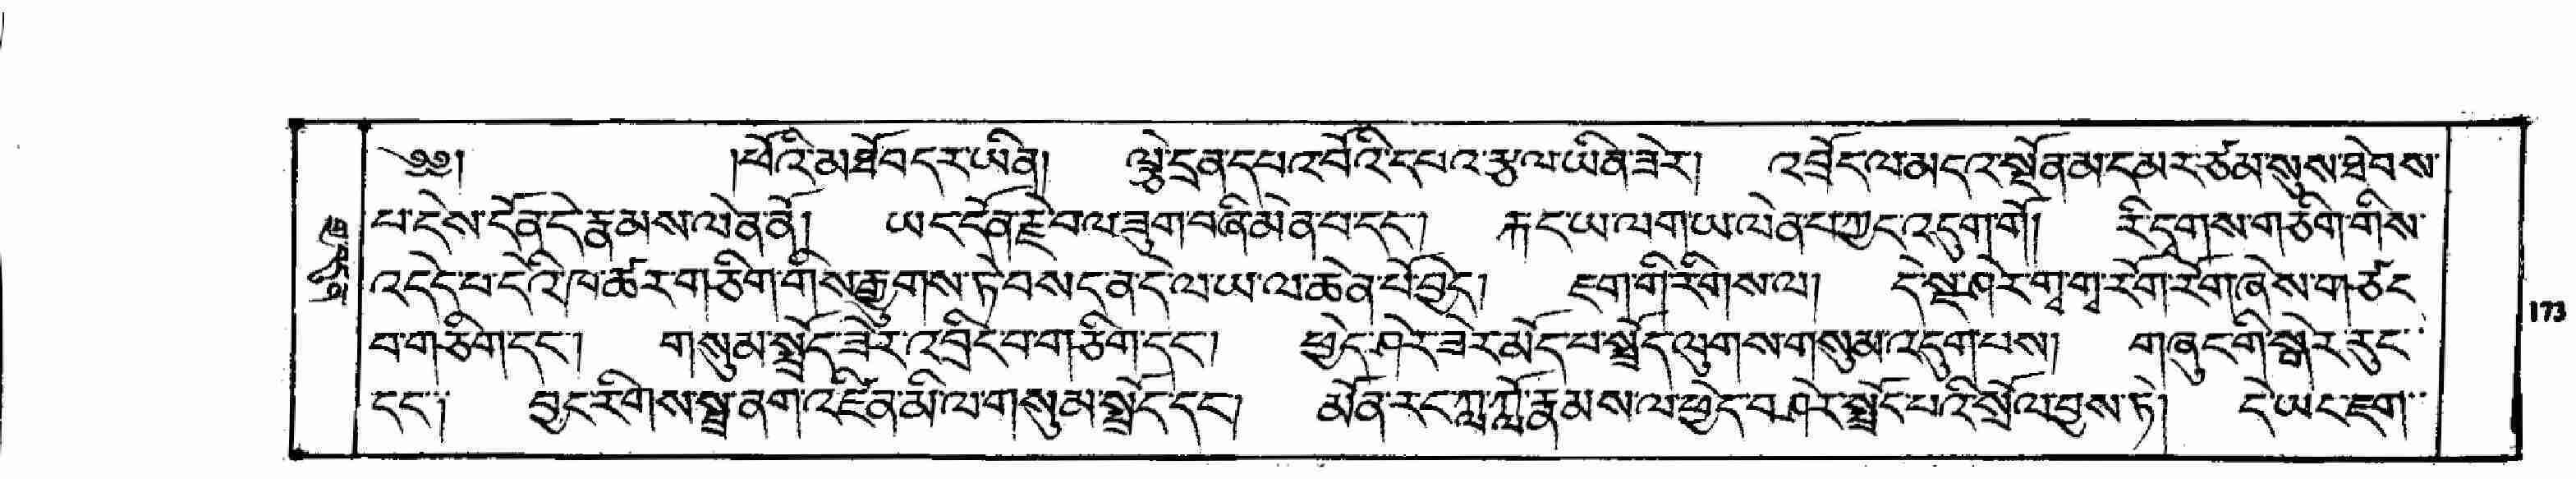 ༄༅། །ཕོའི་མཐོབ་དར་ཡིན། ལྟུ་དྲན་དཔའ་བོའི་དཔའ་རྩལ་ཡིན་ཟེར། འབྲོང་ལ་མདའ་སྔོན་མ་དམར་ཙམ་སུས་ཐེབས་
པ་དེས་དོན་དེ་རྣམས་ལེན་ནོ། ཡང་དོན་རྗེ་བལ་ཟུག་བཞི་མེན་བ་དང་། རྐང་ཡ་ལག་ཡ་ལེན་པ་ཀྱང་འདུག་གོ། རི་དྭགས་གཅིག་གིས་
འདེད་པ་དེའི་ཁ་ཚར་གཅིག་གིས་རྒྱུགས་ཏེ་བསད་ན་དེ་ལ་ཡ་ལ་ཆེན་པོ་བྱེད། ཇག་གི་རིགས་ལ། དེ་སྔ་ཤེར་གྭ་གྭ་རོག་རོག་ཞེས་གཙང་
བ་གཅིག་དང་། གསུམ་སྤྲོད་ཟེར་འབྲིང་བ་གཅིག་དང་། ཕྱེད་ཤེར་ཟེར་མོད་པ་སྤྲོད་ལུགས་གསུམ་འདུག་པས། གཞུང་གི་སྒེར་རུང་
དང་། བྱང་རིགས་སྦྲ་ནག་འཛིན་མི་ལ་གསུམ་སྤྲོད་དང་། མོན་རང་ཀླ་ཀློ་རྣམས་ལ་ཕྱེད་བཤེར་སྤྲོད་པའི་སྲོལ་བྱས་ཏེ། དེ་ཡང་ཇག་
173